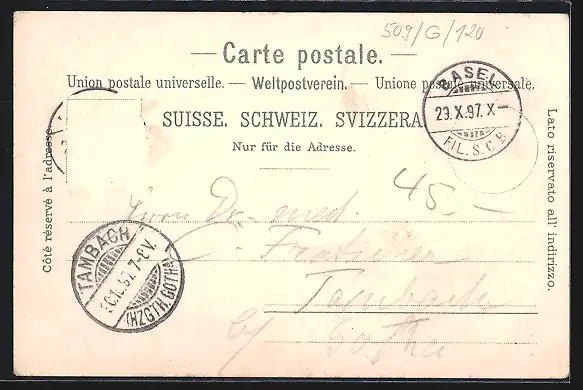 509/G/120
— Carte postale. —
Union postale universelle. — Weltpostverein. — Unione postale universale.
SUISSE. SCHWEIZ. SVIZZERA
Nur für die Adresse.
Côté réservé à l'adresse.
Lato riservato all' indirizzo.
BASEL
29.X.97.X–
FIL. S.C.B.
45.—
Herrn Dr. med.
Tambach
by Gotha
TAMBACH
97.7-8V.
(HZGTH.GOTHA)